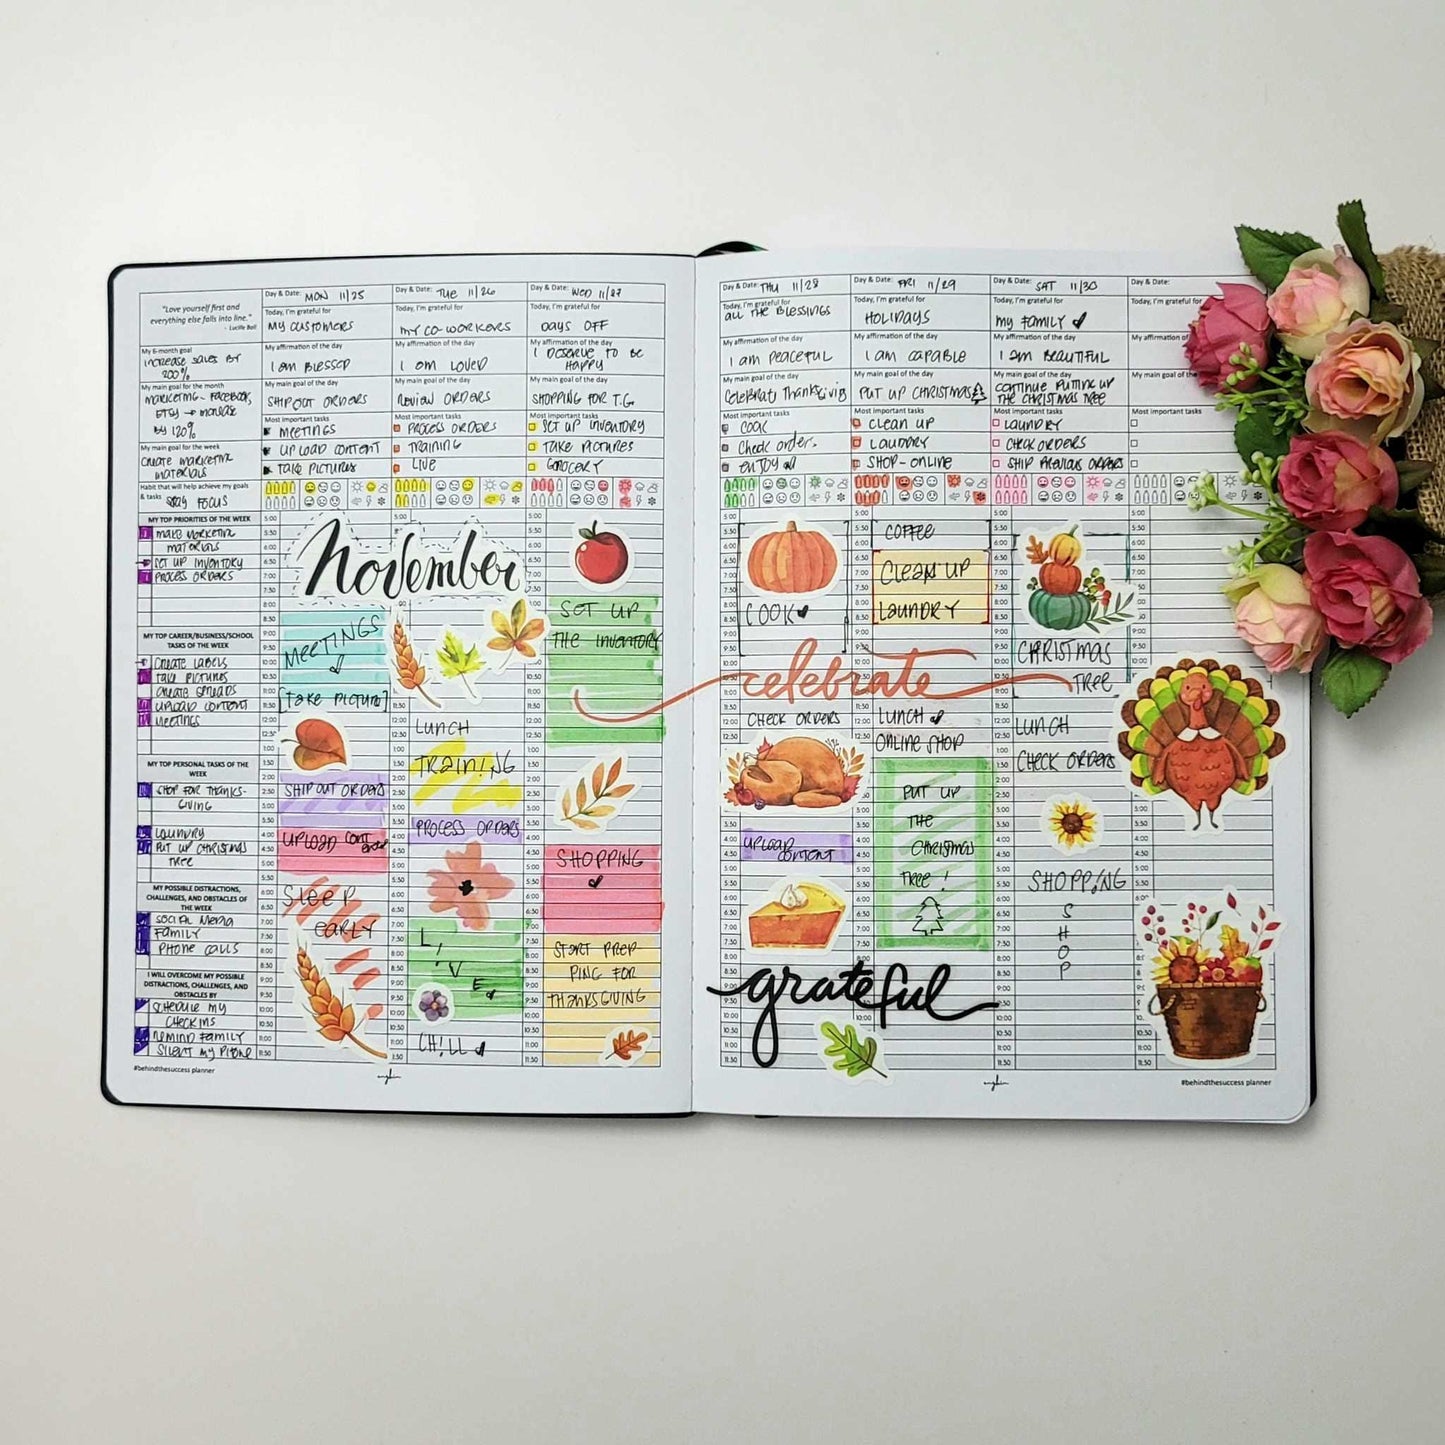 "Love yourself first and
everything else falls into line."
- Lucille Ball
My 6-month goal
INCREASE SALES BY
200%
My main goal for the month
MARKETING - FACEBOOK,
ETSY → INCREASE
BY 120%
My main goal for the week
CREATE MARKETING
MATERIALS
Habit that will help achieve my goals
& tasks
STAY FOCUS
MY TOP PRIORITIES OF THE WEEK
MAKE MARKETING
MATERIALS
SET UP INVENTORY
PROCESS ORDERS
MY TOP CAREER/BUSINESS/SCHOOL
TASKS OF THE WEEK
CREATE LABELS
TAKE PICTURES
CREATE SPREADS
UPLOAD CONTENT
MEETINGS
MY TOP PERSONAL TASKS OF THE
WEEK
SHOP FOR THANKS-
GIVING
LAUNDRY
PUT UP CHRISTMAS
TREE
MY POSSIBLE DISTRACTIONS,
CHALLENGES, AND OBSTACLES OF
THE WEEK
SOCIAL MEDIA
FAMILY
PHONE CALLS
I WILL OVERCOME MY POSSIBLE
DISTRACTIONS, CHALLENGES, AND
OBSTACLES BY
SCHEDULE MY
CHECKINS
REMIND FAMILY
SILENT MY PHONE
#behindthesuccess planner
Day & Date: MON 11/25
Today, I'm grateful for
MY CUSTOMERS
My affirmation of the day
I AM BLESSED
My main goal of the day
SHIP OUT ORDERS
Most important tasks
MEETINGS
UPLOAD CONTENT
TAKE PICTURES
November
MEETINGS
[TAKE PICTURE]
SHIP OUT ORDERS
UPLOAD CONT
SLEEP
EARLY
Day & Date: TUE 11/26
Today, I'm grateful for
MY CO-WORKERS
My affirmation of the day
I AM LOVED
My main goal of the day
REVIEW ORDERS
Most important tasks
PROCESS ORDERS
TRAINING
LIVE
LUNCH
TRAINING
PROCESS ORDERS
L
I
V
E
CHILL
Day & Date: WED 11/27
Today, I'm grateful for
DAYS OFF
My affirmation of the day
I DESERVE TO BE
HAPPY
My main goal of the day
SHOPPING FOR T.G.
Most important tasks
SET UP INVENTORY
TAKE PICTURES
GROCERY
SET UP
THE INVENTORY
SHOPPING
START PREP
PING FOR
THANKSGIVING
Day & Date: THU 11/28
Today, I'm grateful for
ALL THE BLESSINGS
My affirmation of the day
I AM PEACEFUL
My main goal of the day
CELEBRATE THANKSGIVING
Most important tasks
COOK
CHECK ORDERS
ENJOY
COOK
celebrate
CHECK ORDERS
UPLOAD
CONTENT
grateful
Day & Date: FRI 11/29
Today, I'm grateful for
HOLIDAYS
My affirmation of the day
I AM CAPABLE
My main goal of the day
PUT UP CHRISTMAS
Most important tasks
CLEAN UP
LAUNDRY
SHOP-ONLINE
COFFEE
CLEAN UP
LAUNDRY
LUNCH
ONLINE SHOP
PUT UP
THE
CHRISTMAS
TREE!
Day & Date: SAT 11/30
Today, I'm grateful for
MY FAMILY
My affirmation of the day
I AM BEAUTIFUL
My main goal of the day
CONTINUE PUTTING UP
THE CHRISTMAS TREE
Most important tasks
LAUNDRY
CHECK ORDERS
SHIP PREVIOUS ORDERS
CHRISTMAS
TREE
LUNCH
CHECK ORDERS
SHOPPING
S
H
O
P
Day & Date:
Today, I'm grateful for
My affirmation of
My main goal of the day
Most important tasks
#behindthesuccess planner